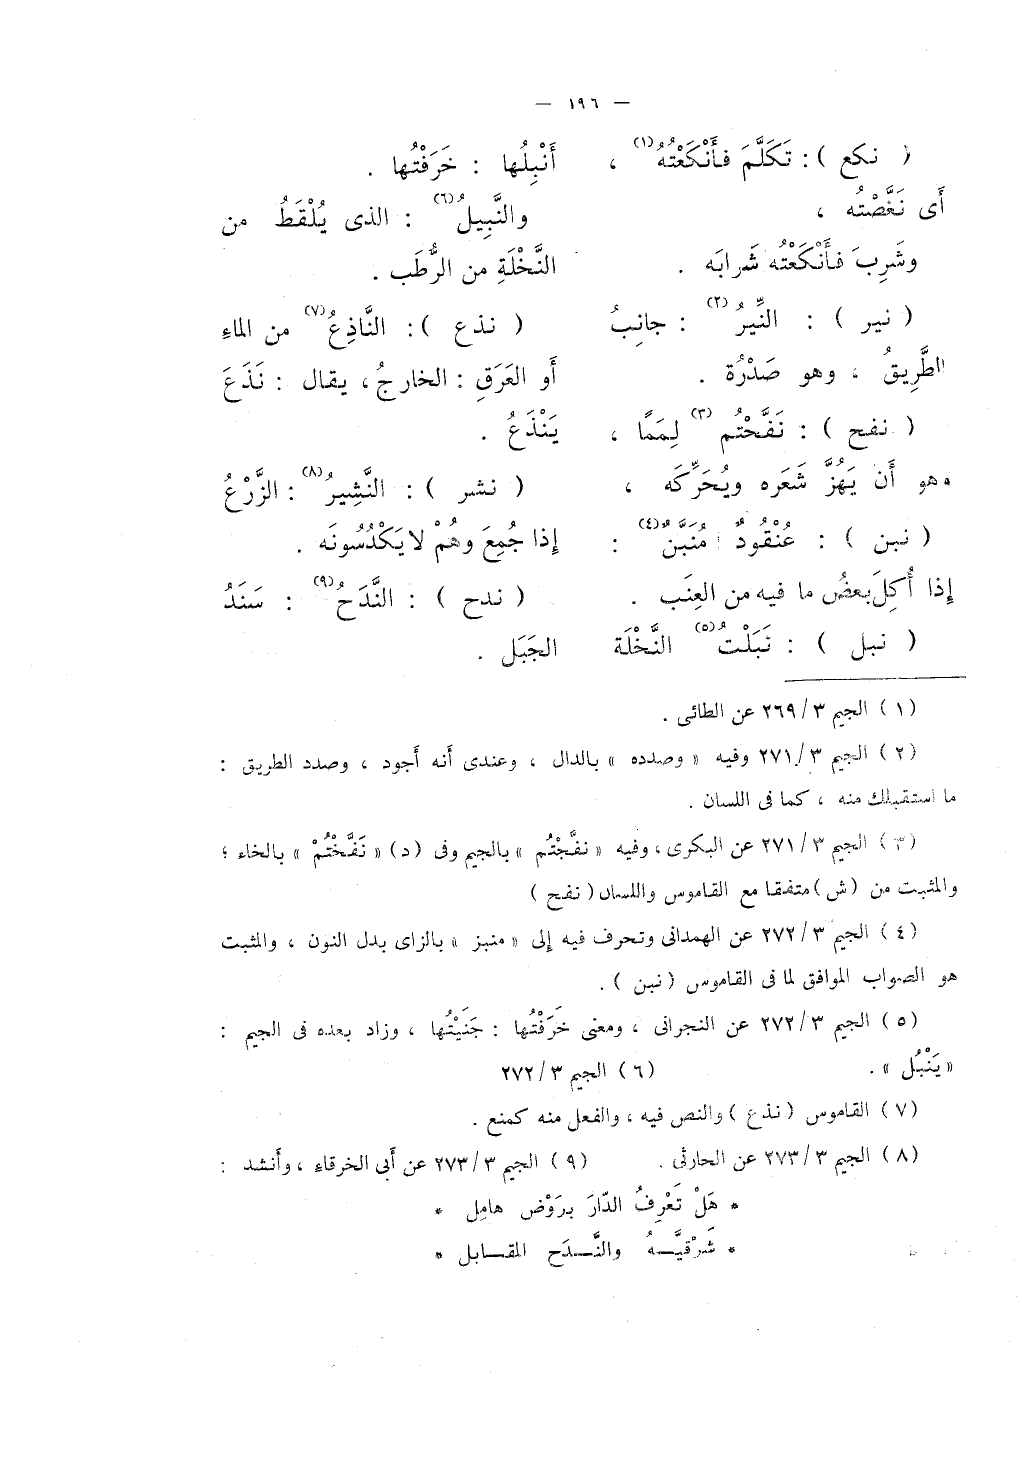 — ١٩٦ —
( نكع ) : تَكَلَّمَ فأَنْكَعْتُهُ(١) ،
أَى نَغَّصْتُه ،
وشَرِبَ فأَنْكَعْتُه شَرابَه .
( نير ) : النِّيرُ(٢) : جانِبُ
الطَّرِيقُ ، وهو صَدْرُهُ .
( نفح ) : نَفَّحْتُم(٣) لِمَمًّا ،
وهو أَن يَهُزَّ شَعَره ويُحَرِّكَه ،
( نبن ) : عُنْقُودٌ مُنَبَّنٌ(٤) :
إِذا أُكِلَ بعضُ ما فيه من العِنَب .
( نبل ) : نَبَلْتُ(٥) النَّخْلَة
أَنْبِلُها : خَرَفْتُها .
والنَّبِيلُ(٦) : الذى يُلْقَطُ من
النَّخْلَةِ من الرُّطَب .
( نذع ) : النَّاذِعُ(٧) من الماء
أَو العَرَقِ : الخارجُ ، يقال : نَذَعَ
يَنْذَعُ .
( نشر ) : النَّشِيرُ(٨) : الزَّرْعُ
إِذا جُمِعَ وهُمْ لا يَكْدُسُونَه .
( ندح ) : النَّدَحُ(٩) : سَنَدُ
الجَبَل .
(١) الجيم ٣/٢٦٩ عن الطائى .
(٢) الجيم ٣/٢٧١ وفيه « وصدده » بالدال ، وعندى أنه أجود ، وصدد الطريق :
ما استقبلك منه ، كما فى اللسان .
(٣) الجيم ٣/٢٧١ عن البكرى ، وفيه « نفَّجْتُم » بالجيم وفى (د) « نَفَّخْتُمْ » بالخاء ؛
والمثبت من (ش) متفقا مع القاموس واللسان ( نفح )
(٤) الجيم ٣/٢٧٢ عن الهمدانى وتحرف فيه إلى « منبز » بالزاى بدل النون ، والمثبت
هو الصواب الموافق لما فى القاموس ( نبن ) .
(٥) الجيم ٣/٢٧٢ عن النجرانى ، ومعنى خَرَفْتُها : جَنَيْتُها ، وزاد بعده فى الجيم :
« يَنْبُل » . (٦) الجيم ٣/٢٧٢
(٧) القاموس ( نذع ) والنص فيه ، والفعل منه كمنع .
(٨) الجيم ٣/٢٧٣ عن الحارثى . (٩) الجيم ٣/٢٧٣ عن أبى الخرقاء ، وأنشد :
* هَلْ تَعْرِفُ الدّارَ بِرَوْض هامِل *
* شَرْقيَّهُ والنَّدَح المقابل *